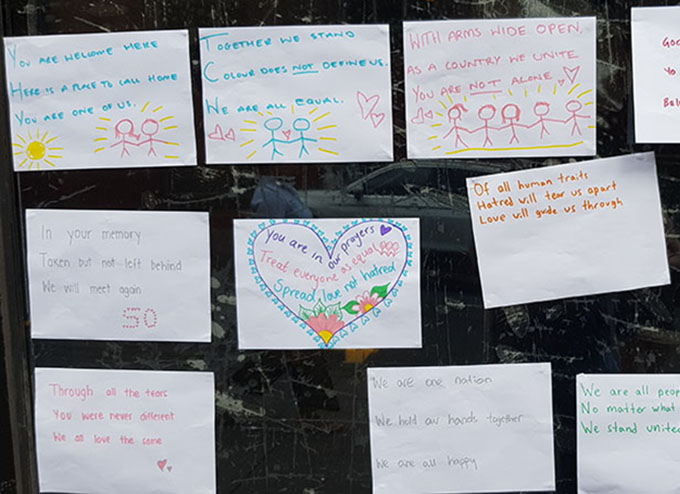 You are welcome here
Here is a place to call home
You are one of us.
Together we stand
Colour does not define us.
We are all equal.
With arms wide open
As a country we unite
You are not alone
Goo
Yo
Bel
Of all human traits
Hatred will tear us apart
Love will guide us through
In your memory
Taken but not left behind
We will meet again
50
You are in our prayers
Treat everyone as equal
Spread love not hatred
Through all the tears
You were never different
We all love the same
We are one nation
We hold our hands together
We are all happy
We are all peop
No matter what
We stand unite